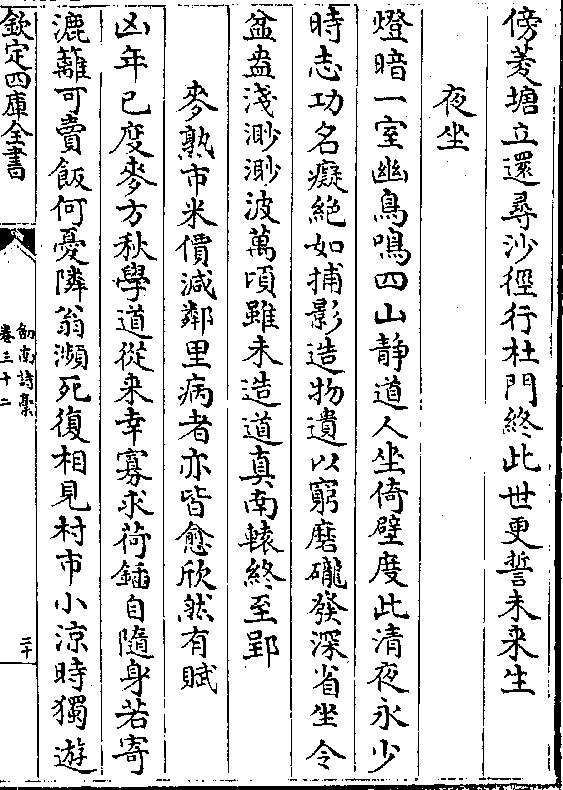 傍菱塘立還尋沙徑行杜門終此世更誓未来生
夜坐
燈暗一室幽鳥鳴四山静道人坐倚壁度此清夜永少
時志功名癡絶如捕影造物遺以窮磨礲發深省坐令
盆盎淺渺渺波萬頃雖未造道真南轅終至郢
麥熟市米價減鄰里病者亦皆愈欣然有賦
凶年已度麥方秋學道從来幸寡求荷鍤自隨身若寄
漉籬可賣飯何憂隣翁瀕死復相見村市小涼時獨遊
欽定四庫全書
劒南詩稾
卷三十二
二十